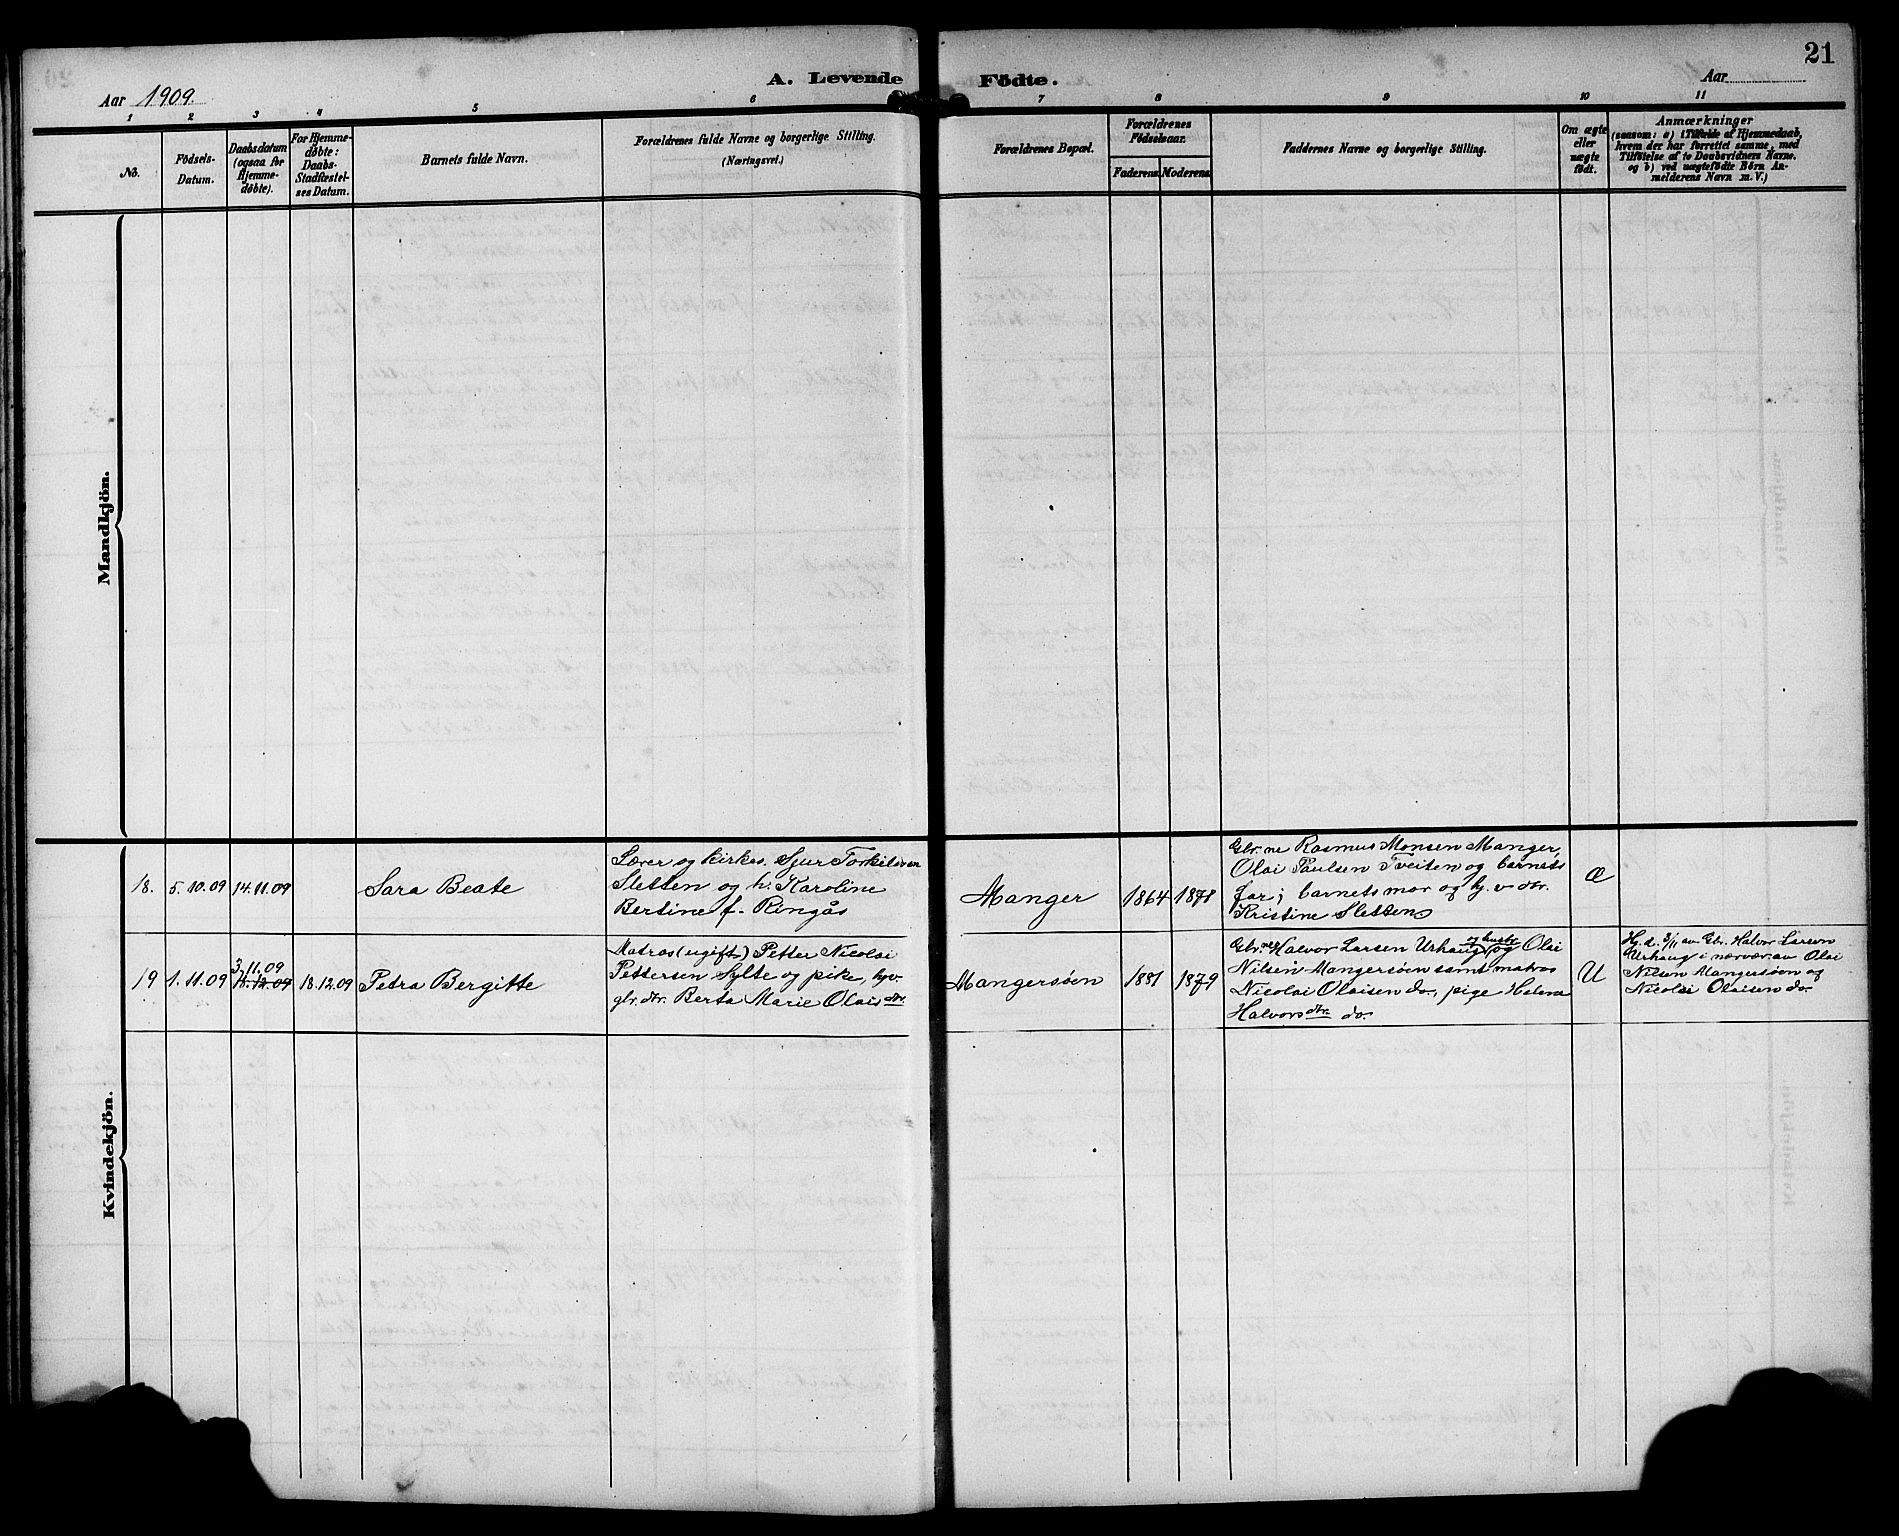 21
A. Levende Födte.
Aar 1909.
Aar
1 2 3 4 5 6 7 8 9 10 11
No.
Födsels-
Datum.
Daabsdatum
(ogsaa for
Hjemme-
døbte).
For Hjemme-
døbte:
Daabs-
Stadfæstel-
ses Datum.
Barnets fulde Navn.
Forældrenes fulde Navne og borgerlige Stilling.
(Næringsvei.)
Forældrenes Bopæl.
Forældrenes
Födselsaar.
Faderens. Moderens.
Faddernes Navne og borgerlige Stilling.
Om ægte
eller
uægte
født.
Anmærkninger
(saasom: a) i Tilfælde af Hjemmedaab,
hvem der har forrettet samme, med
Tilføielse af to Daabsvidners Navne,
og b) ved uægtefødte Børn An-
melderens Navn m. V.)
Mandkjön.
Kvindekjön.
18. 5.10.09 14.11.09 Sara Beate
Lærer og kirkes. Sjur Torkilsen
Sletten og h. Karoline
Bertine f. Ringås
Manger 1864 1878
Gbr.ne Rasmus Monsen Manger,
Olai Paulsen Tveiten og barnets
far; barnets mor og hj.v. dtr.
Kristine Sletten
Æ
19 1.11.09 3.11.09
11.12.09 18.12.09 Petra Bergitte
Matros (ugift) Petter Nicolai
Pettersen Sylte og pike, hjv.
gbr. dtr. Berta Marie Olais dtr.
Mangersøen 1881 1879
Gbr.ne Halvor Larsen Urhaug og hustr. og Olai
Nilsen Mangersøen samt matros
Nicolai Olaisen do., pige Helene
Halvors dtr. do.
U
Hj. d. 3/11 av Gbr. Halvor Larsen
Urhaug i nærvær av Olai
Nilsen Mangersøen og
Nicolai Olaisen do.